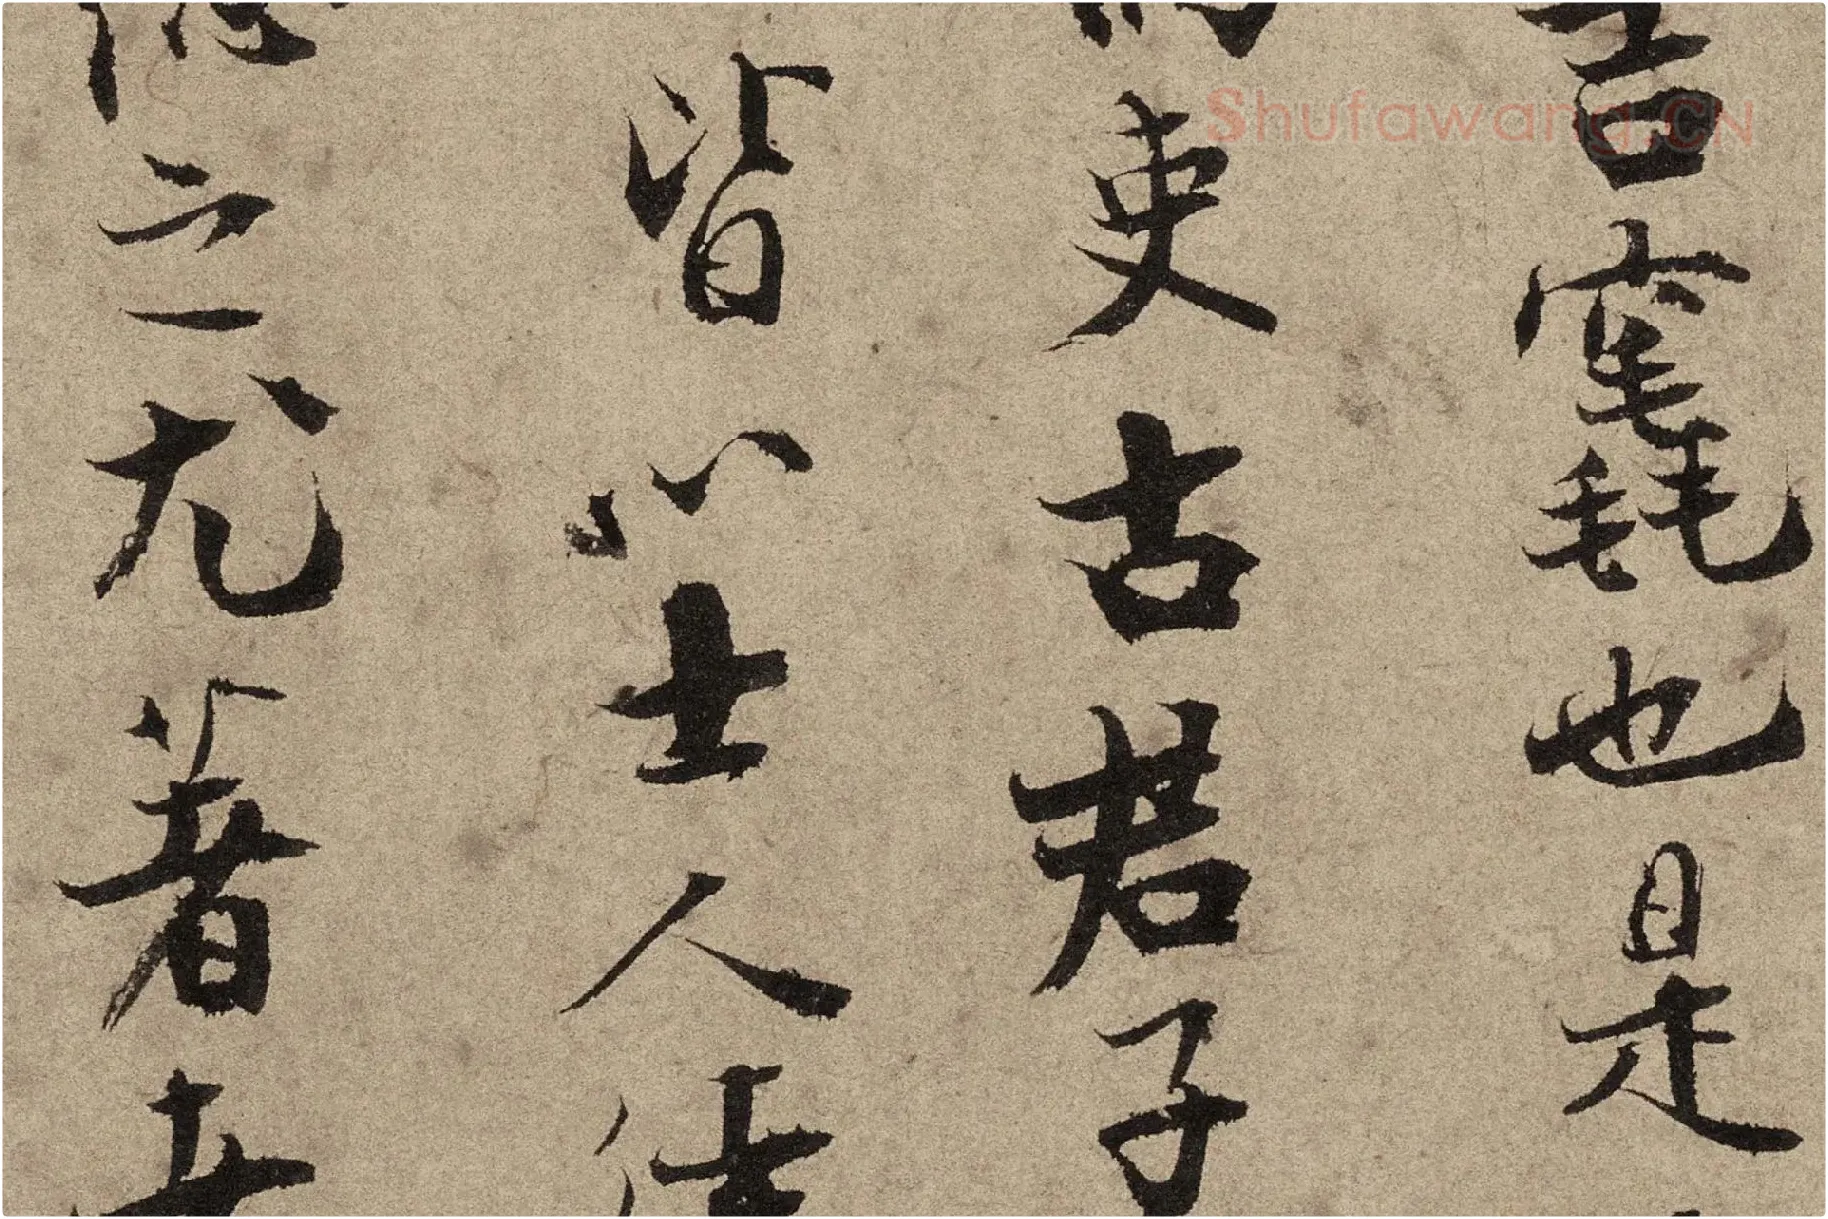 言竁也是
吏古君子
皆以士人仕
之尤著
Shufawang.CN